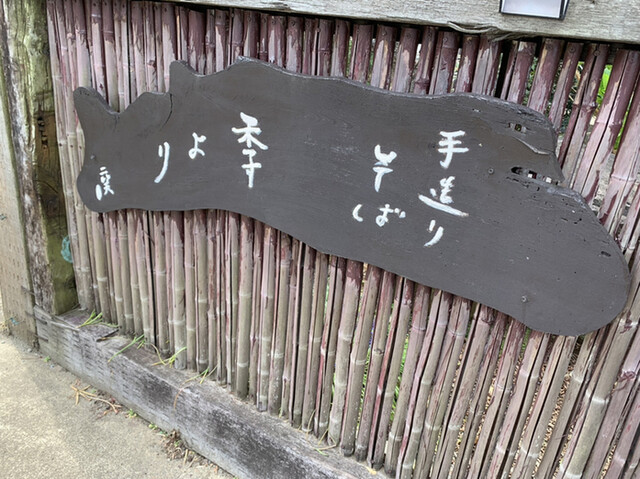 手造り
そば
季より